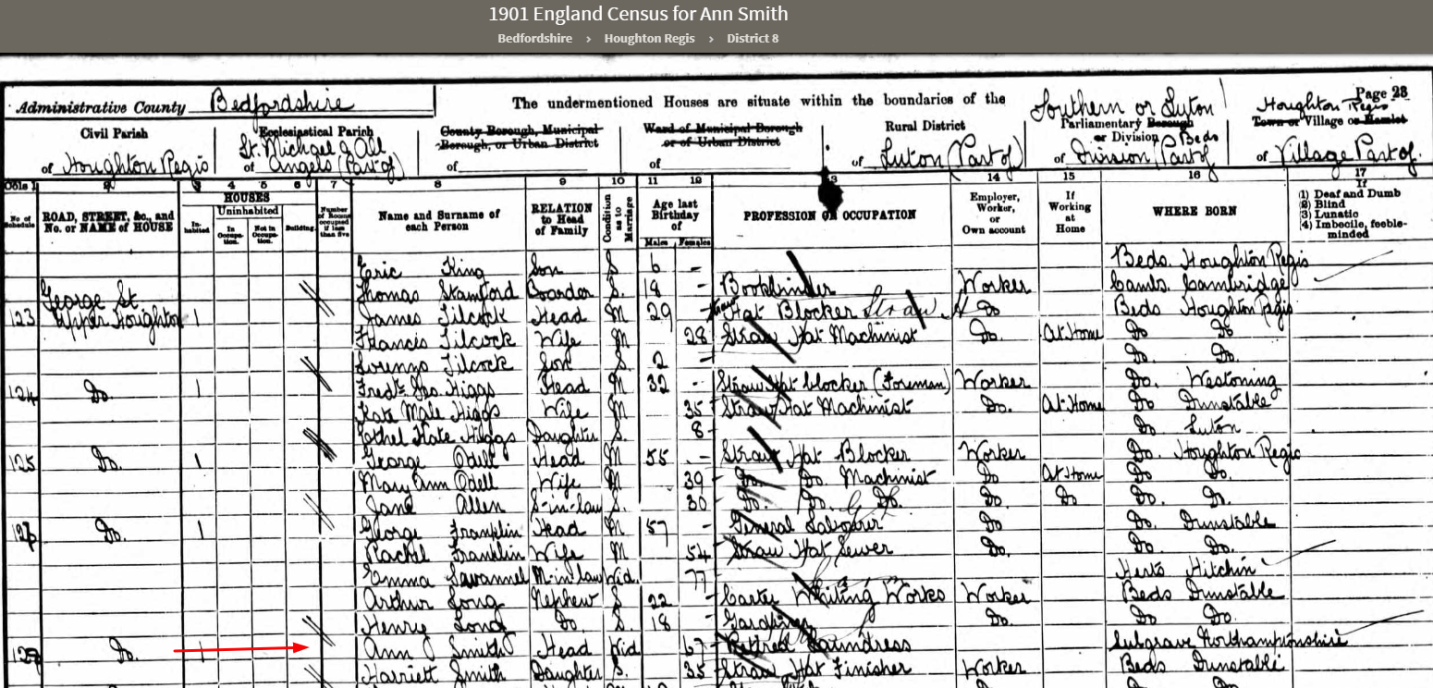 1901 England Census for Ann Smith
Bedfordshire > Houghton Regis > District 8
Administrative County Bedfordshire The undermentioned Houses are situate within the boundaries of the Page 23
Civil Parish of Houghton Regis
Ecclesiastical Parish of St. Michael & All Angels (Part of)
County Borough, Municipal Borough, or Urban District of
Ward of Municipal Borough or of Urban District of
Rural District of Luton (Part of)
Southern or Luton Parliamentary Borough or Division of Beds Division (Part of
Houghton Regis Town or Village or Hamlet of Village Part of.
Cols 1 2 3 4 5 6 7 8 9 10 11 12 13 14 15 16 17
No of Schedule ROAD, STREET, &c., and No. or NAME of HOUSE HOUSES Inhabited Uninhabited In Occupation. Not in Occupation. Building. Number of Rooms occupied if less than five Name and Surname of each Person RELATION to Head of Family Condition as to Marriage Age last Birthday of Males Females PROFESSION OR OCCUPATION Employer, Worker, or Own account If Working at Home WHERE BORN If (1) Deaf and Dumb (2) Blind (3) Lunatic (4) Imbecile, feeble-minded
Eric King Son S 6 - Beds Houghton Regis
Thomas Stamford Boarder S. 19 - Bookbinder Worker Cambs. Cambridge
123 George St. Upper Houghton 1 James Tilcock Head M 29 - Hat Blocker Straw Do Beds Houghton Regis
Francis Tilcock Wife M 28 Straw Hat Machinist Do. At Home Do Do
Lorenzo Tilcock Son S. 2 - Do. Do.
124 Do. 1 Fredk. Geo. Higgs Head M 32 - Straw Hat blocker (Foreman) Worker Do. Westoning
Kate Male Higgs Wife M 35 Straw Hat Machinist Do. At Home Do Dunstable
Ethel Kate Higgs Daughter S. 8 Do Luton
125 Do. 1 George Odell Head M 55 - Straw Hat Blocker Worker Do. Houghton Regis
Mary Ann Odell Wife M 39 Do. Do. Machinist Do At Home Do Do.
Jane Allen S-in-law S 30 Do. Do. Do. Do Do Do. Do.
126 Do. 1 George Franklin Head M 57 - General Labourer Do Do. Dunstable
Rachel Franklin Wife M 54 Straw Hat Sewer Do. Do. Do.
Emma M-in-law Wid. 77 Herts Hitchin
Arthur Long Nephew S 22 - Carter Whiting Works Worker Beds Dunstable
Henry Long Do. S. 18 - Gardener Do. Do Do.
127 Do. 1 Ann Smith Head Wid 67 Retired Laundress Sulgrave Northamptonshire
Harriett Smith Daughter S. 35 Straw Hat Finisher Worker Beds Dunstable